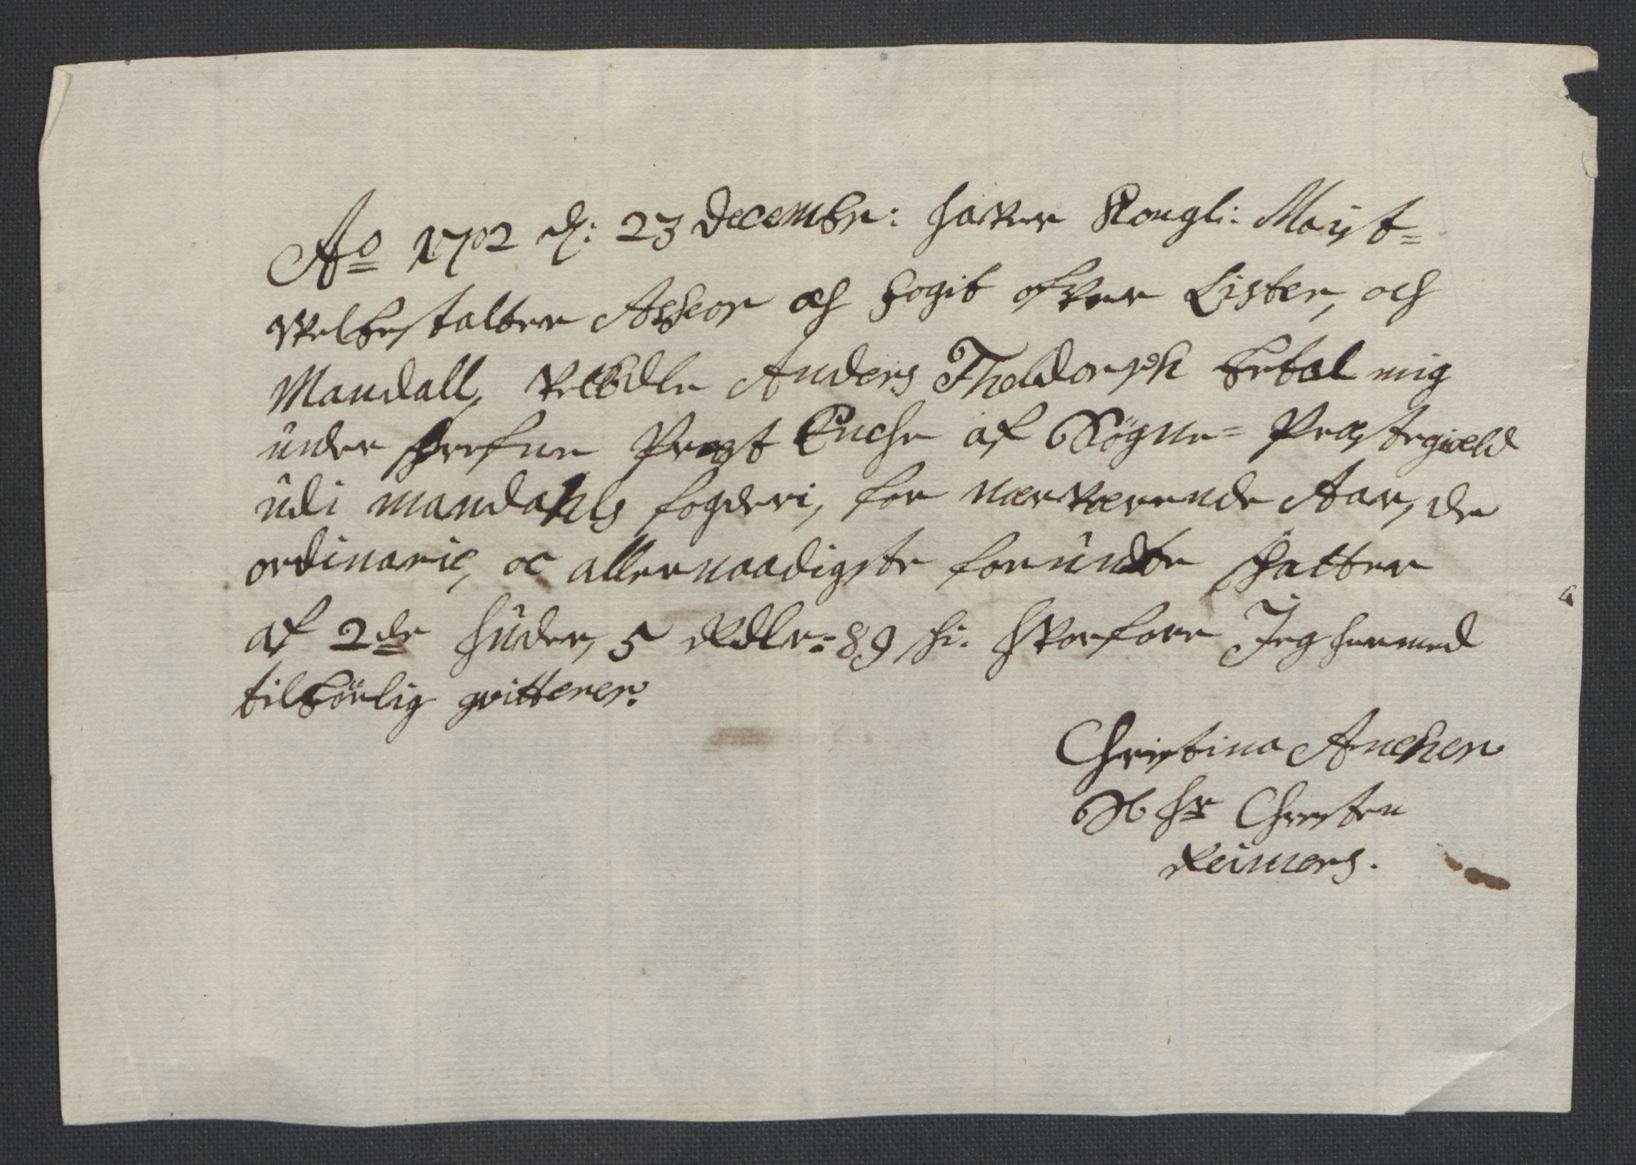 Ao 1702 d: 23 Decembr: hafver Kongli: Mayt=
velbestalter Assesor och fogit ofver Lister, och
Mandall, VelEdle Anders Tholdorph betal mig
under skrefne Præst Enche af Søgne= Præstegield
udi mandahls fogderi, for nærværende Aar, de
ordinarie, oc allernaadigste forundte skatter
af 2de huder, 5 Rdlr: 89 sk. hvorfore Jeg hermed
tilbørlig qvitterer.
Christina Anchen
S hr Chresten
Reimers.